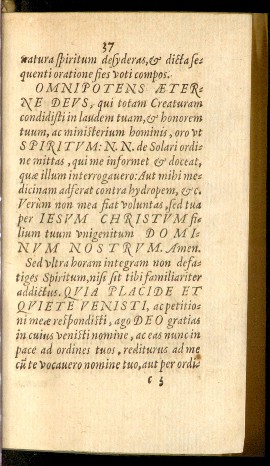 37
natura spiritum desyderas, & dicta se-
quenti oratione fies voti compos.
OMNIPOTENS ÆTER-
NE DEVS, qui totam Creaturam
condidisti in laudem tuam, & honorem
tuum, ac ministerium hominis, oro vt
SPIRITVM: N.N. de Solari ordi-
ne mittas, qui me informet & doceat,
quæ illum interrogauero: Aut mihi me-
dicinam adferat contra hydropem, &c.
Verùm non mea fiat voluntas, sed tua
per IESVM CHRISTVM fi-
lium tuum vnigenitum DOMI-
NVM NOSTRVM. Amen.
Sed vltra horam integram non defa-
tiges Spiritum, nisi sit tibi familiariter
addictus. QVIA PLACIDE ET
QVIETE VENISTI, ac petitio-
ni meæ respondisti, ago DEO gratias
in cuius venisti nomine, ac eas nunc in
pace ad ordines tuos, rediturus ad me
cũ te vocauero nomine tuo, aut per ordi-
c 5